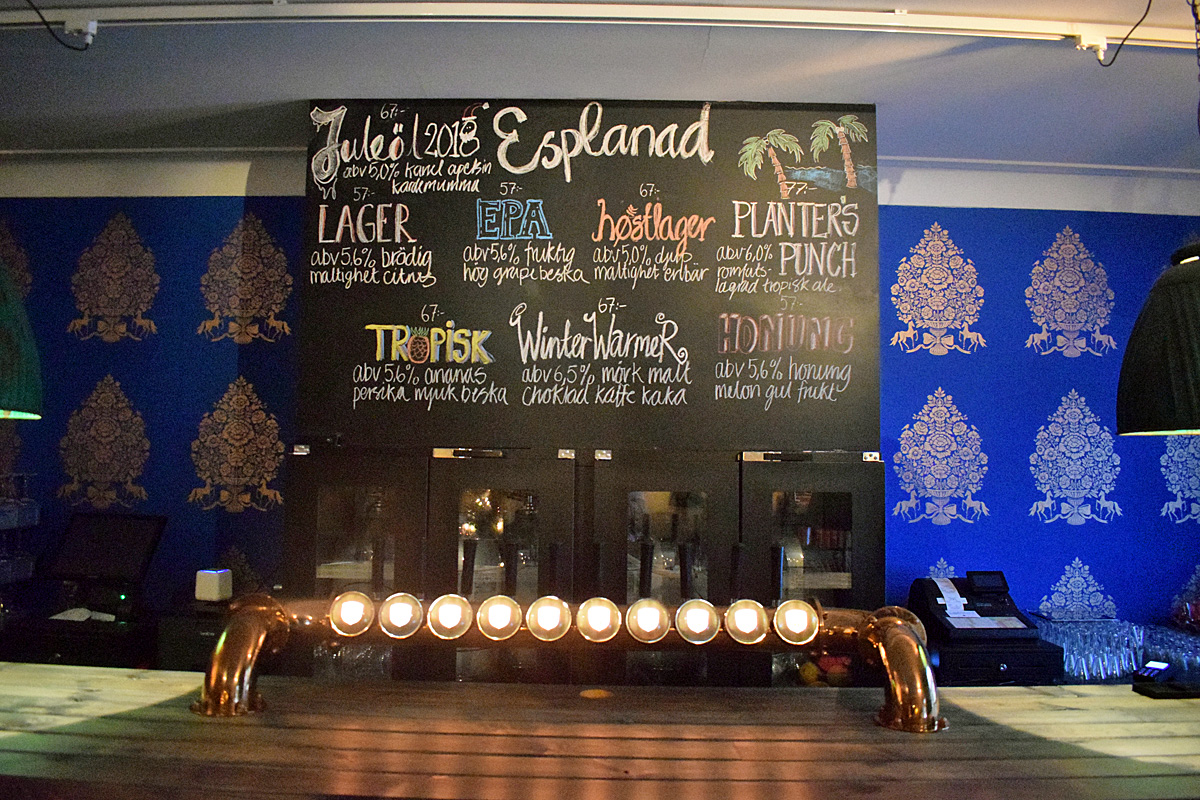 67:-
Juleöl 2018 Esplanad
abv 5,0% kanel apelsin
kardemumma
57:-
LAGER
abv 5,6% brödig
maltighet citrus
57:-
EPA
abv 5,6% fruktig
hög grape beska
67:-
høstlager
abv 5,0% djup
maltighet enbär
77:-
PLANTER'S
PUNCH
abv 6,0%
romfats-
lagrad tropisk ale.
67:-
TROPISK
abv 5,6% ananas
persika mjuk beska
67:-
Winter Warmer
abv 6,5% mörk malt
choklad kaffe kaka
57:-
HONUNG
abv 5,6% honung
melon gul frukt